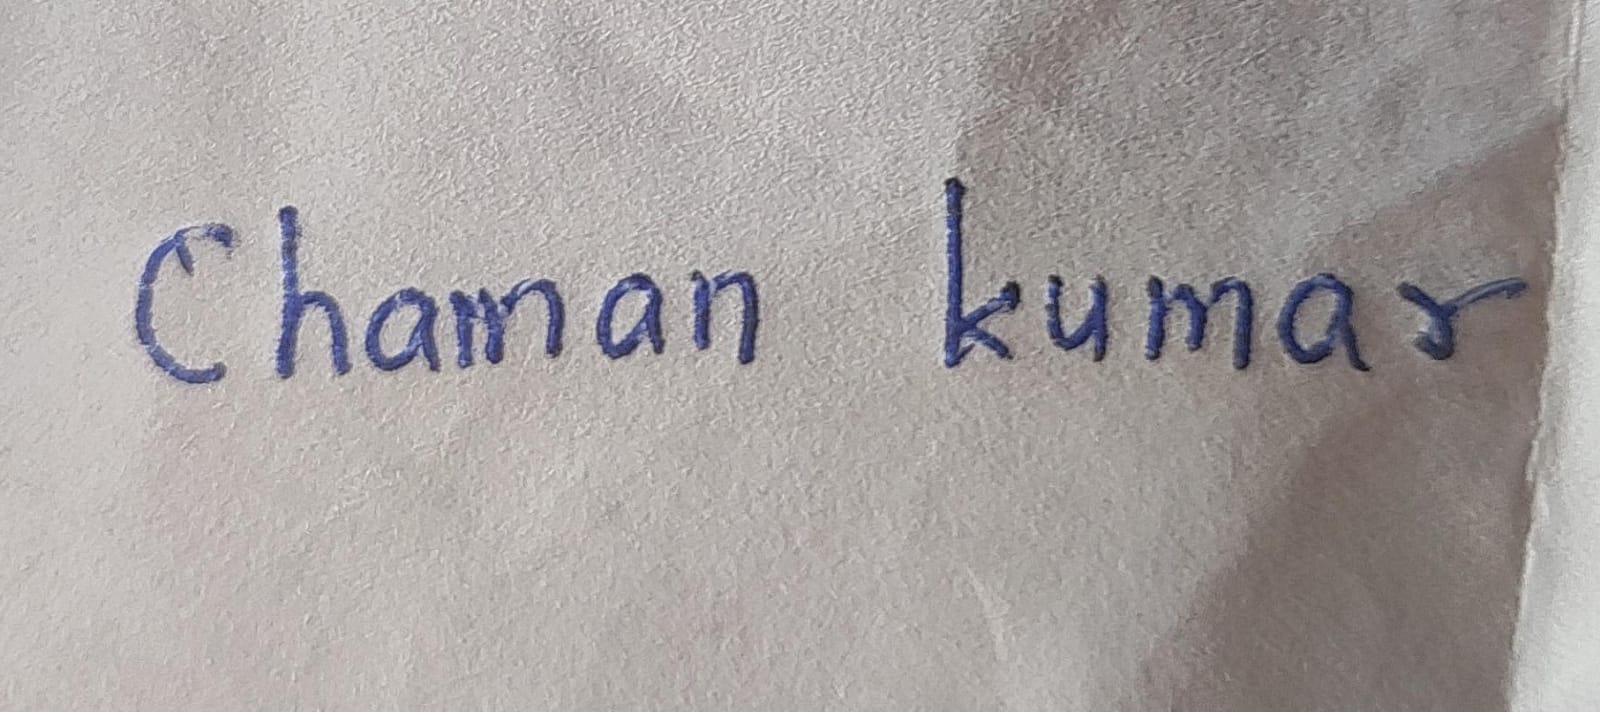 Chaman kumar